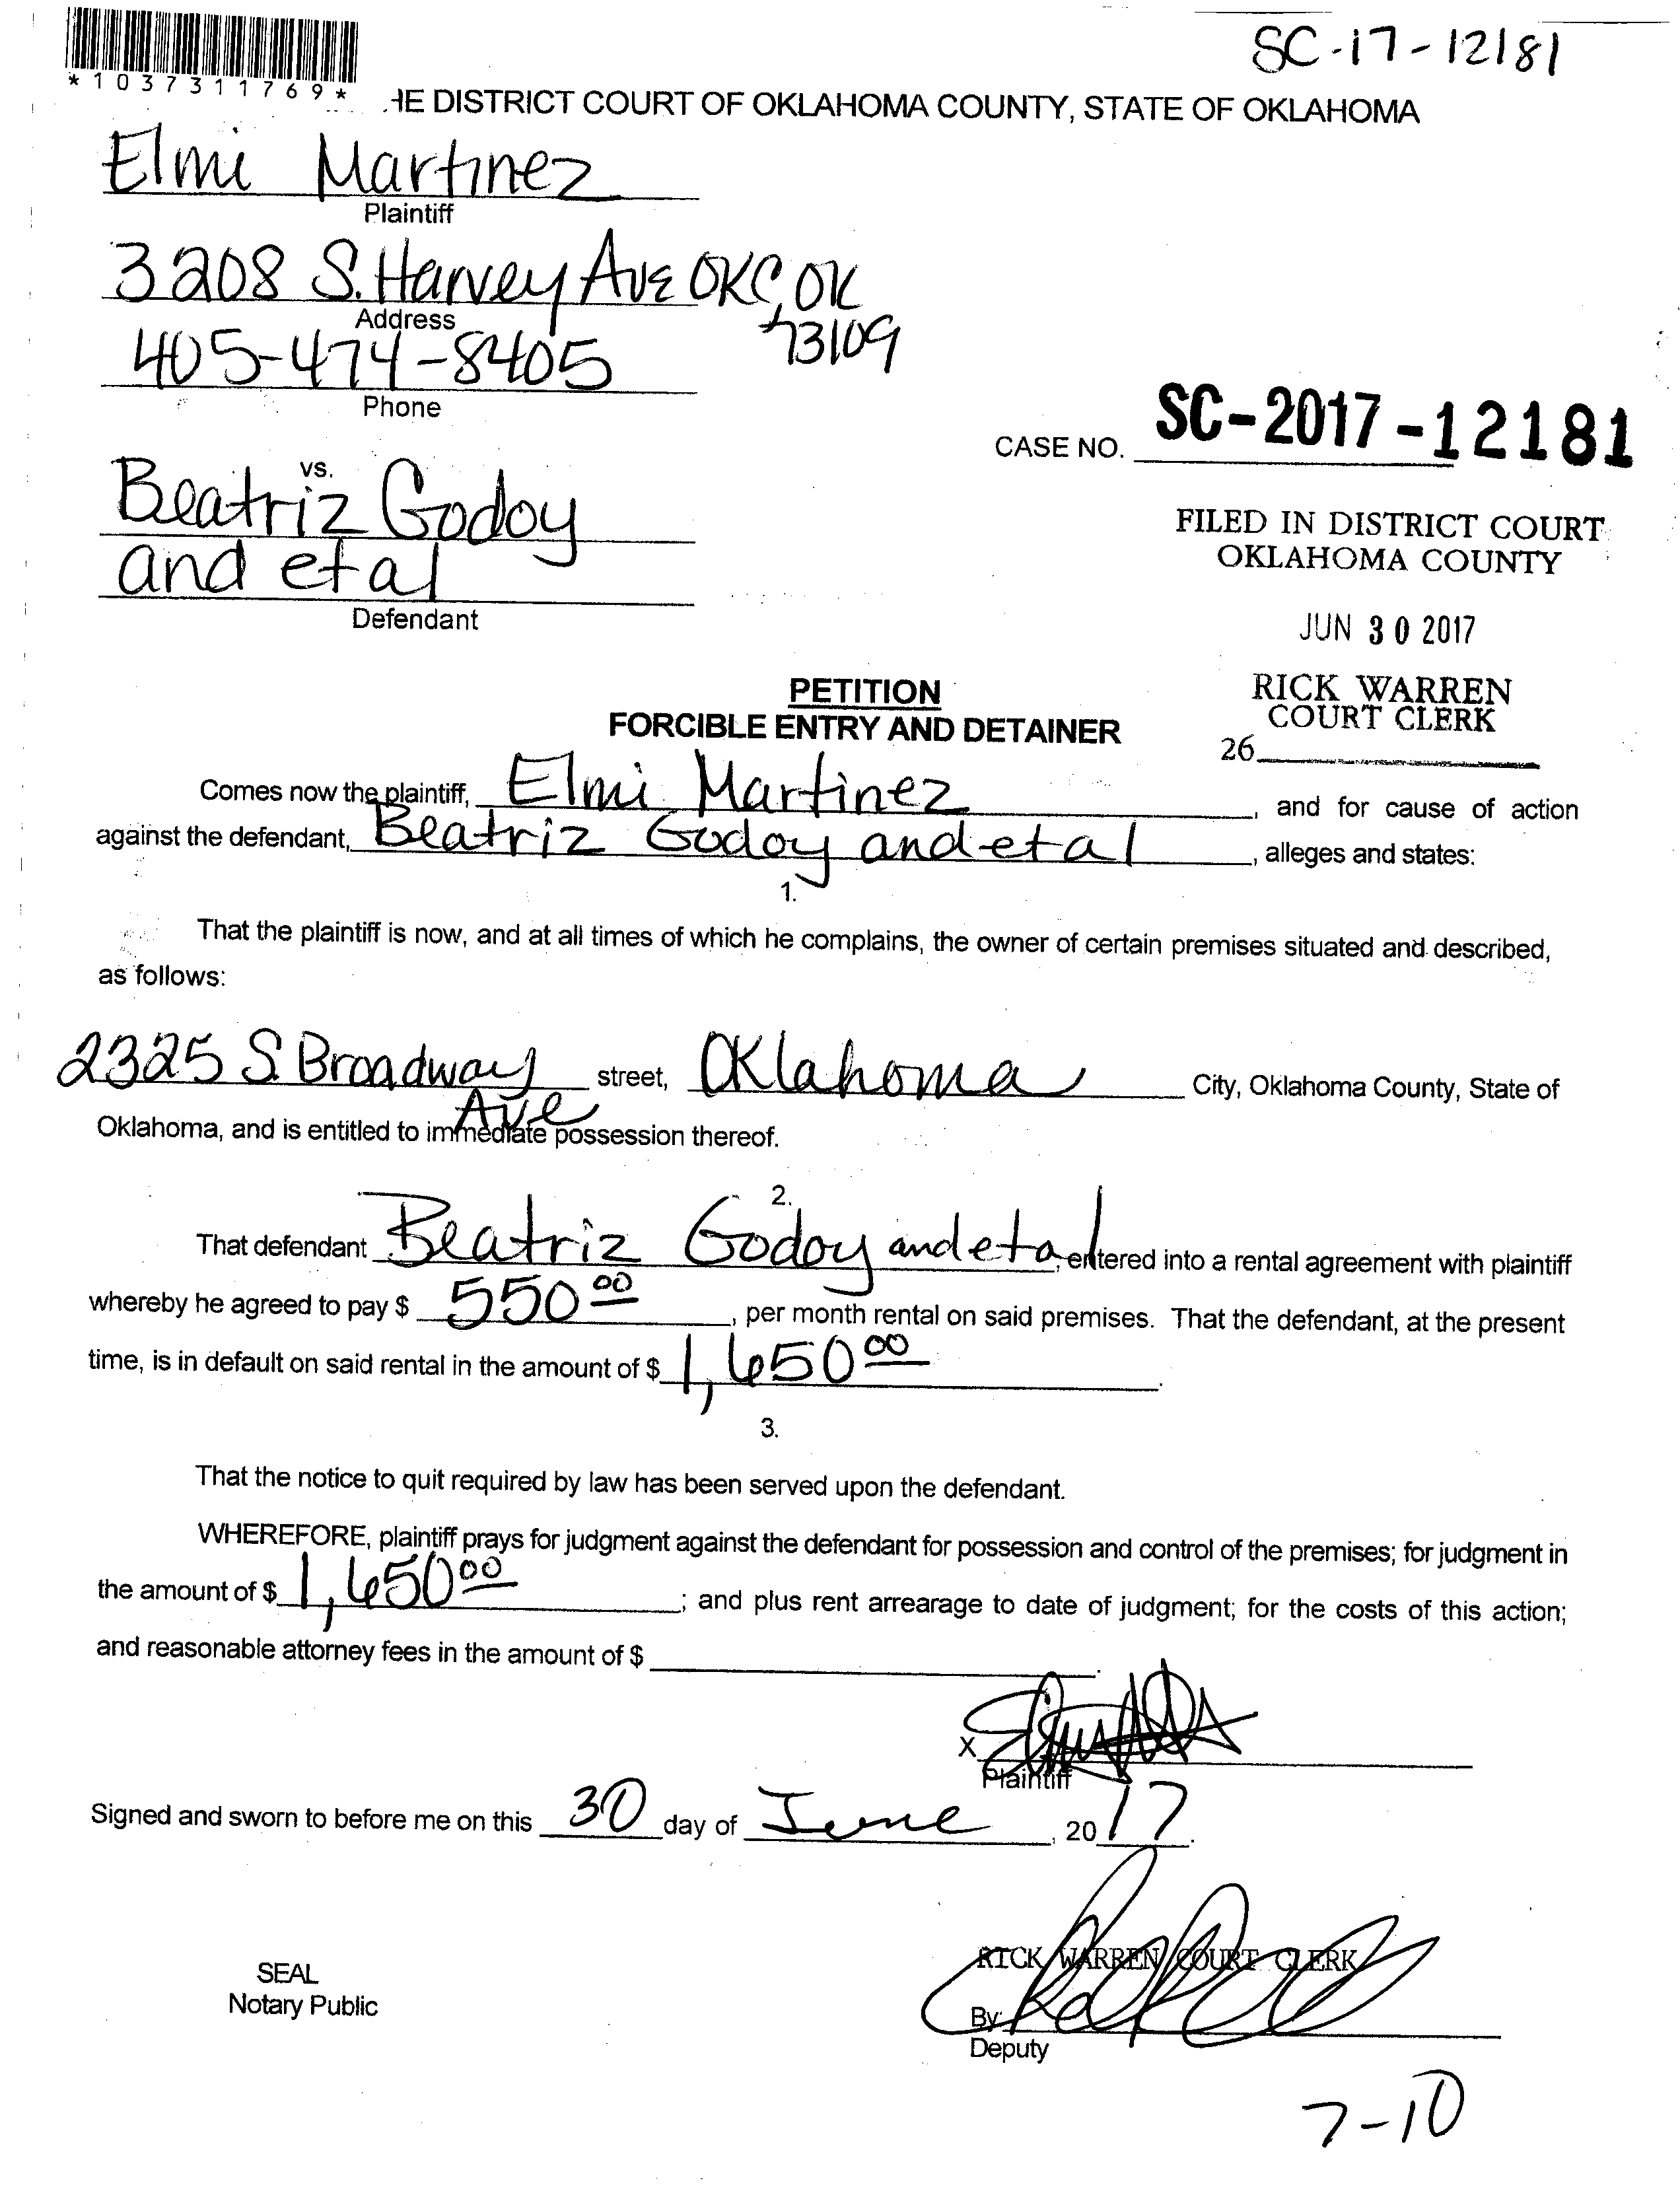 SC-17-12181
*1037311769*
HE DISTRICT COURT OF OKLAHOMA COUNTY, STATE OF OKLAHOMA
Elmi Martinez
Plaintiff
3208 S. Harvey Ave OKC, OK
73109
Address
405-474-8405
Phone
CASE NO. SC-2017-12181
vs.
Beatriz Godoy
and et al
Defendant
FILED IN DISTRICT COURT
OKLAHOMA COUNTY
JUN 30 2017
RICK WARREN
COURT CLERK
26
PETITION
FORCIBLE ENTRY AND DETAINER
Comes now the plaintiff, Elmi Martinez, and for cause of action
against the defendant, Beatriz Godoy and et al, alleges and states:
1.
That the plaintiff is now, and at all times of which he complains, the owner of certain premises situated and described,
as follows:
2325 S. Broadway Ave street, Oklahoma City, Oklahoma County, State of
Oklahoma, and is entitled to immediate possession thereof.
2.
That defendant Beatriz Godoy and et al, entered into a rental agreement with plaintiff
whereby he agreed to pay $ 550 00, per month rental on said premises. That the defendant, at the present
time, is in default on said rental in the amount of $ 1,650 00.
3.
That the notice to quit required by law has been served upon the defendant.
WHEREFORE, plaintiff prays for judgment against the defendant for possession and control of the premises; for judgment in
the amount of $ 1,650 00; and plus rent arrearage to date of judgment; for the costs of this action;
and reasonable attorney fees in the amount of $
X
Plaintiff
Signed and sworn to before me on this 30 day of June, 2017.
RICK WARREN COURT CLERK
SEAL
Notary Public
By:
Deputy
7-10